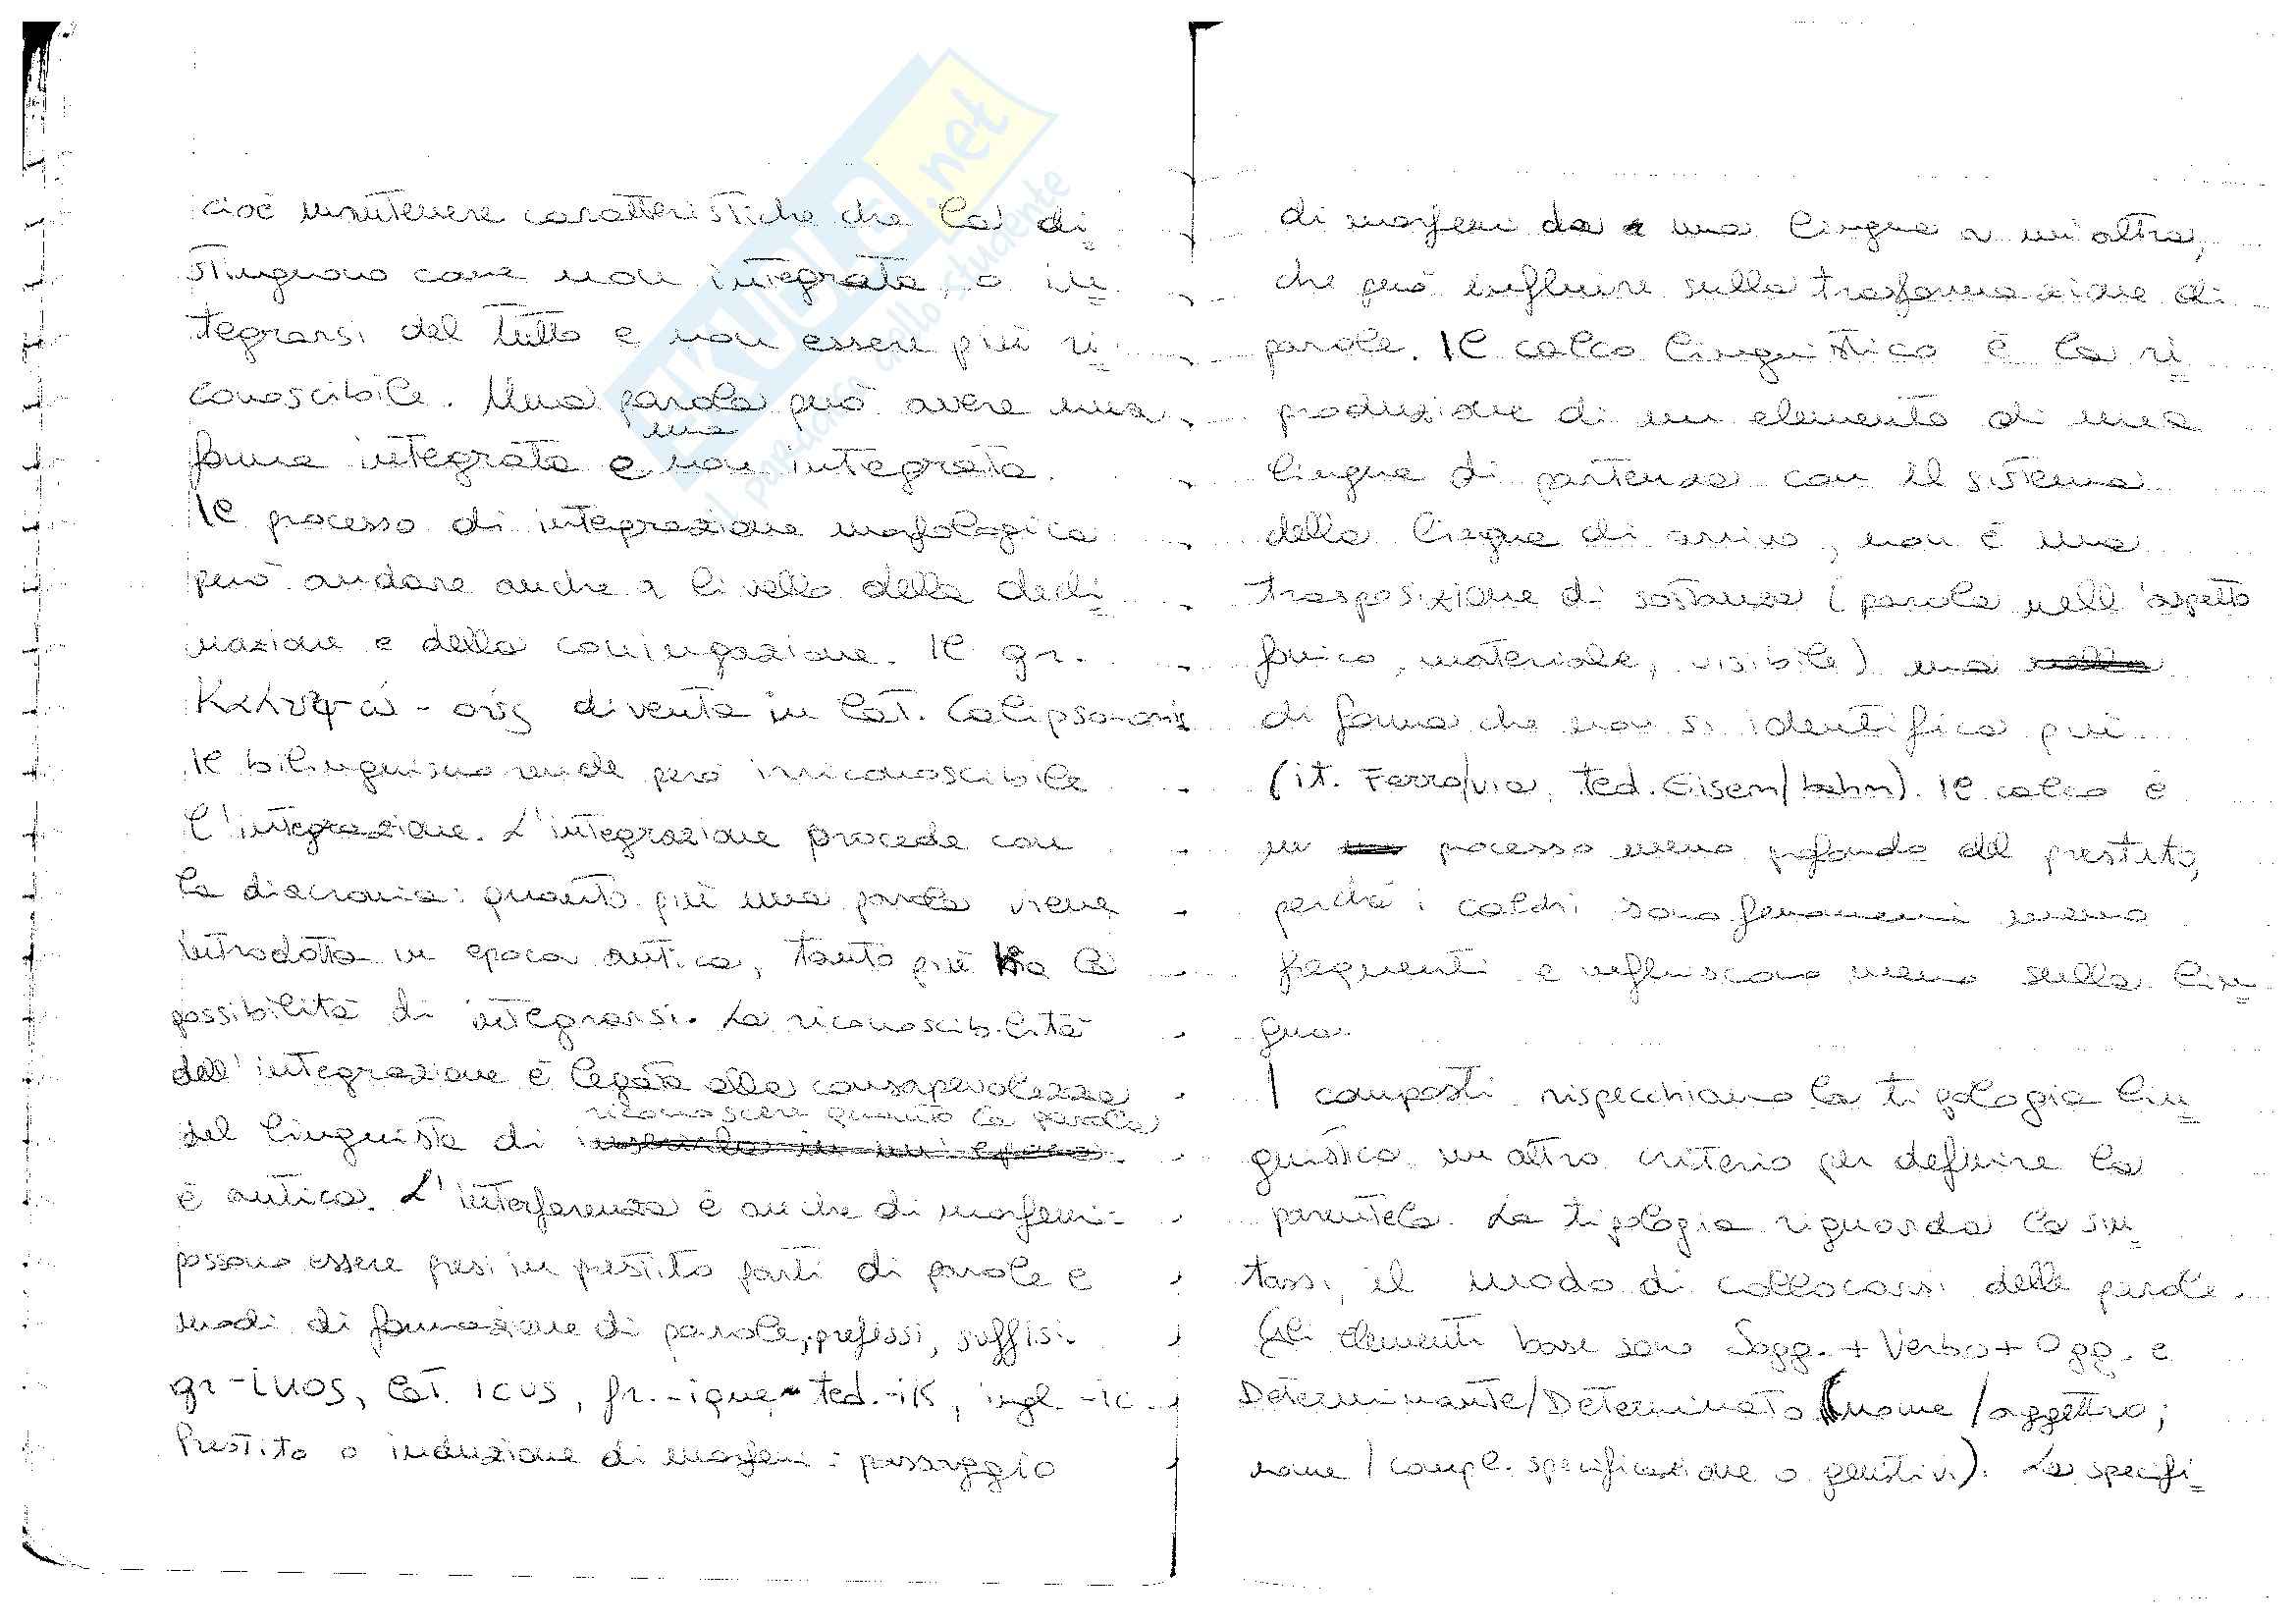 cioè mantenere caratteristiche che la di=
stinguono come non integrata, o in=
tegrarsi del tutto e non essere più ri
conoscibile. Una parola può avere una
forma integrata e una non integrata.
Il processo di integrazione morfologica
può andare anche a livello della decli=
nazione e della coniugazione. Il gr.
Καλυψώ - οῦς diventa in lat. Calipso-onis
Il bilinguismo rende però irriconoscibile
l'integrazione. L'integrazione procede con
la diacronia: quanto più una parola viene
introdotta in epoca antica, tanto più ha la
possibilità di integrarsi. La riconoscibilità
dell'integrazione è legata alla consapevolezza
del linguista di riconoscere quanto la parola
è antica. L'interferenza è anche di morfemi:
possono essere presi in prestito parti di parole e
modi di formazione di parole, prefissi, suffissi.
gr -ικος, lat. icus, fr. -ique, ted. -ik, ingl -ic.
Prestito o induzione di morfemi: passaggio
di morfemi da una lingua a un'altra,
che può influire sulla trasformazione di
parole. Il calco linguistico è la ri=
produzione di un elemento di una
lingua di partenza con il sistema
della lingua di arrivo, non è una
trasposizione di sostanza (parola nell'aspetto
fonico, materiale, visibile) ma
di forma che non si identifica più
(it. Ferro/via, ted. Eisen/bahn). Il calco è
un processo meno profondo del prestito,
perché i calchi sono fenomeni meno
frequenti e influiscono meno sulla lin=
gua.
I composti rispecchiano la tipologia lin=
guistica, un altro criterio per definire la
parentela. La tipologia riguarda la sin=
tassi, il modo di collocarsi delle parole.
Gli elementi base sono Sogg. + Verbo + Ogg. e
Determinante/Determinato (nome/aggettivo;
nome/compl. specificazione o genitivi). La specifi=
IKUBO.net
il paradiso dello studente